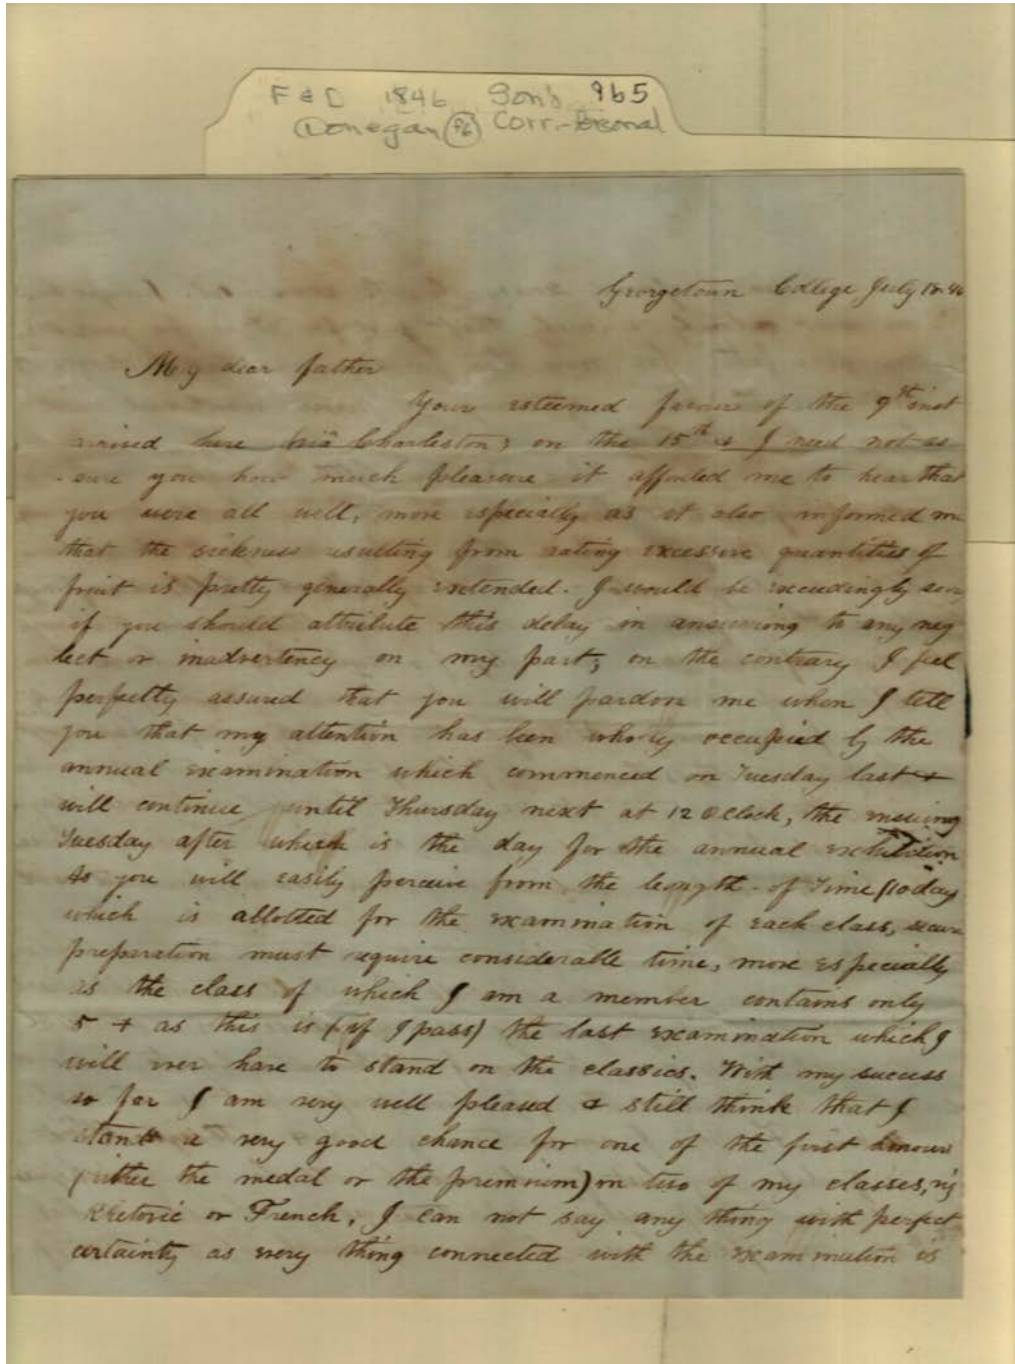 F & D 1846 Son's 965
Donegan 86 Corr.-Personal
Georgetown College, July 18. 46
My dear father
Your esteemed favour of the 9th inst
arrived here via Charleston, on the 15th & I need not as
-sure you how much pleasure it afforded me to hear that
you were all well, more especially as it also informed me
that the sickness resulting from eating excessive quantities of
fruit is pretty generally extended. I would be exceedingly
if you should attribute this delay in answering to any neg
lect or inadvertency on my part; on the contrary I feel
perfectly assured that you will pardon me when I tell
you that my attention has been wholy occupied by the
annual examination which commenced on Tuesday last &
will continue until Thursday next at 12 OClock, the ensuing
Tuesday after which is the day for the annual exhibition
so you will easily perceive from the length of Time (10 day
which is allotted for the examination of each class,
preparation must require considerable time, more especially
as the class of which I am a member contains only
5 & as this is (if I pass) the last examination which I
will ever have to stand on the classics. With my success
so far I am very well pleased & still think that I
stand a very good chance for one of the first honours
(either the medal or the premium) in two of my classes,
Rhetoric or French, I can not say any thing with perfect
certainty as every thing connected with the examination is